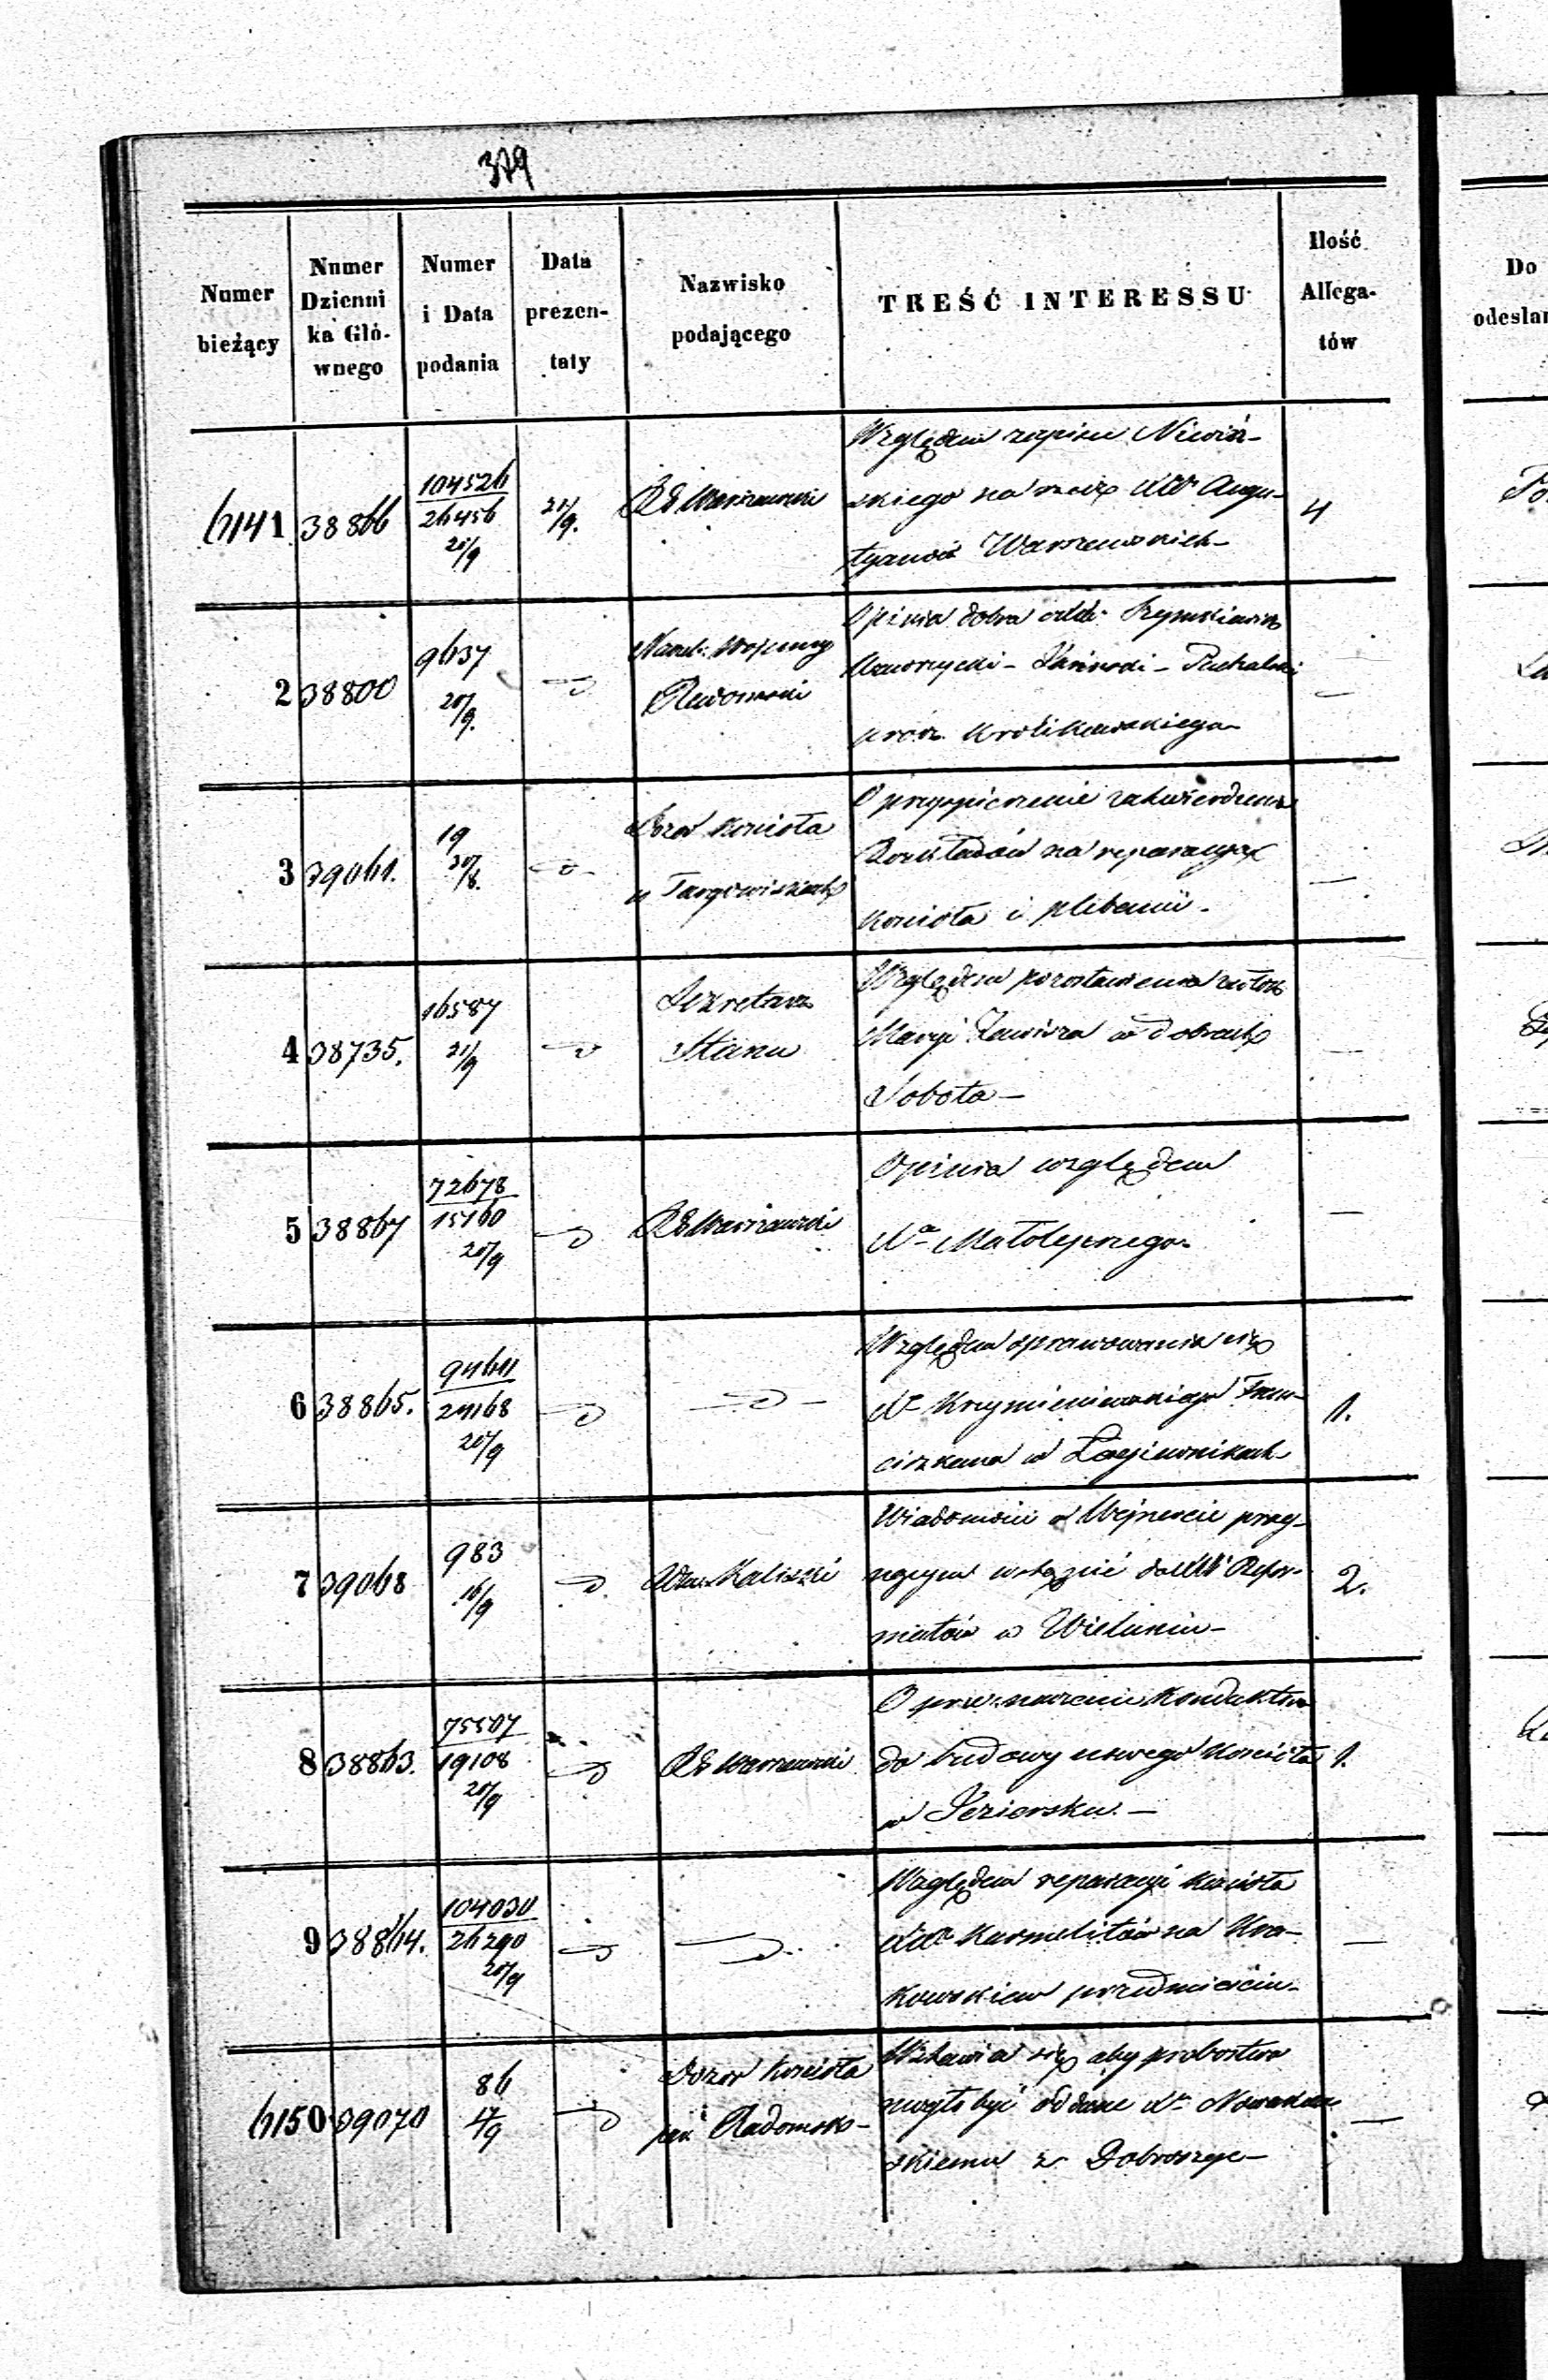 379
Numer bieżący | Numer Dzienni ka Głó- wnego | Numer i Data podania | Data prezen- taty | Nazwisko podającego | TREŚĆ INTERESSU | Ilość Allega- tów | Do odesłan
6141 | 38866 | 104526 / 26456 21/9 | 21/9. | RG Warszawski | Względem zapisu Niewiń-
skiego na rzecz XX Augu-
styanów Warszawskich | 4
2 | 38800 | 9637 20/9. | Nacz. Wojenny
Radomski | Opinia dobra
prócz Krolikowskiego | —
3 | 39061. | 19 20/8. | Dozór Kościoła
w Targowiskach | O przyspieszenie zatwierdzenia
Rozkładów na reparacyą
Kościoła i plebanii. | —
4 | 38735. | 16587 21/9 | Sekretarz
Stanu | Względem pozostawienia
Maryi Zawisza w dobrach
Sobota — | —
5 | 38867 | 72678 / 15160 20/9 | RG Warszawski | Opinia względem
Xa Małolepszego | —
6 | 38865. | 94641 / 24168 20/9 | — | Względem sprawowania się
Xa Krzymieniewskiego Fran-
ciszkana w Łagiewnikach | 1.
7 | 39068 | 983 16/9 | Kaliski | Wiadomości o Wejnercie prag-
nącym wstąpić do XX Refor-
matów w Wieluniu — | 2.
8 | 38863. | 75507 / 19108 20/9 | RG Warszawski | O przeznaczenie Konduktora
do budowy nowego Kościoła
w Jeziorsku. — | 1.
9 | 38864. | 104030 / 26290 20/9 | — | Względem reparacyi Kościoła
XX Karmelitów na Kra-
kowskiem przedmieściu. | —
6150 | 39070 | 86 17/9 | Dozór Kościoła
par. Radomsko — | Wstawia się aby probostwo
mogło być oddane Xu Nowakow-
skiemu z Dobroszyc — | —